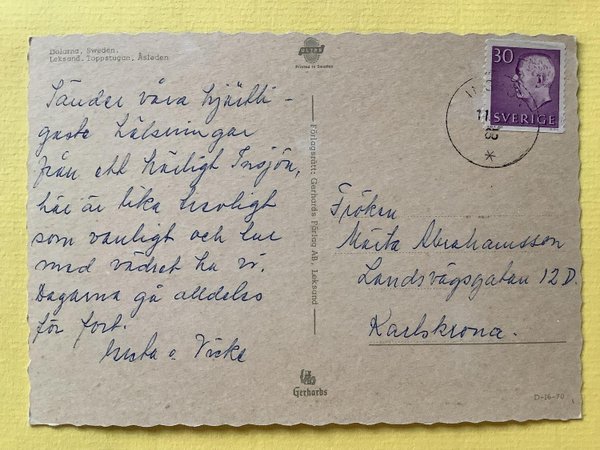 Dalarna, Sweden.
Leksand. Toppstugan, Åsleden
ULTRA
Printed in Sweden
30
SVERIGE
11
Sänder våra hjärtli-
gaste hälsningar
från ett härligt Insjön,
här är lika trevligt
som vanligt och tur
med vädret ha vi.
Dagarna gå alldeles
för fort.
Fröken
Märta Abrahamsson
Landsvägsgatan 12 D.
Karlskrona.
Förlagsrätt: Gerhards Förlag AB, Leksand
Gerhards
D-16-70